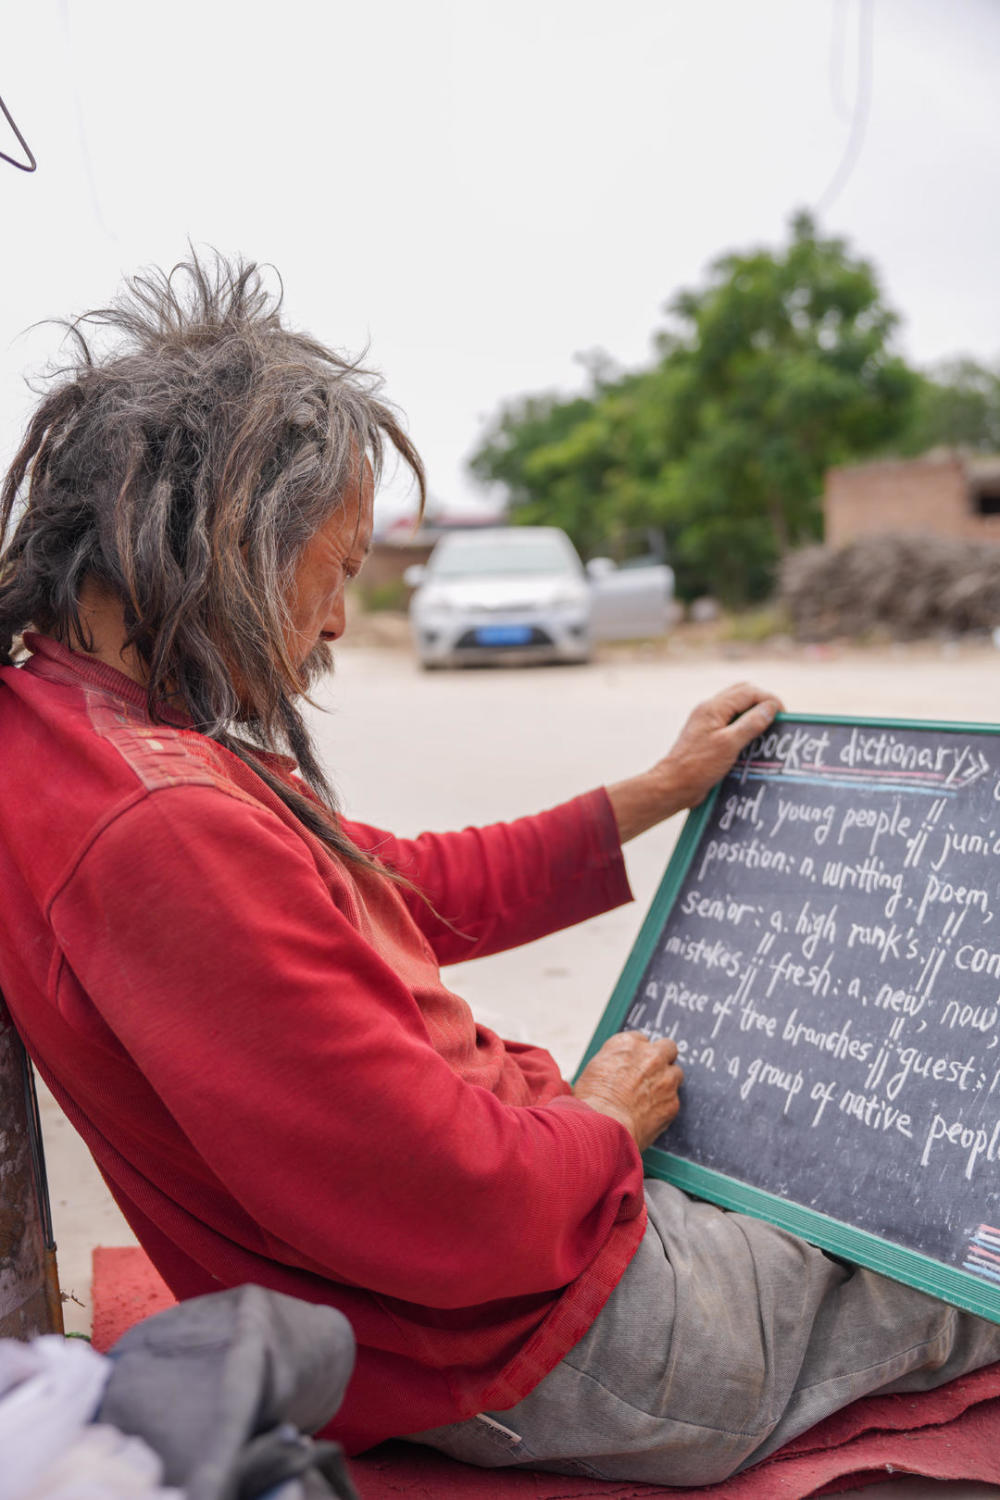 pocket dictionary》
girl, young people,|| junio
position: n. writting, poem,
senior: a. high rank's.|| con
mistakes.|| fresh: a. new, now,
a piece of tree branches.|| guest:
n. a group of native people